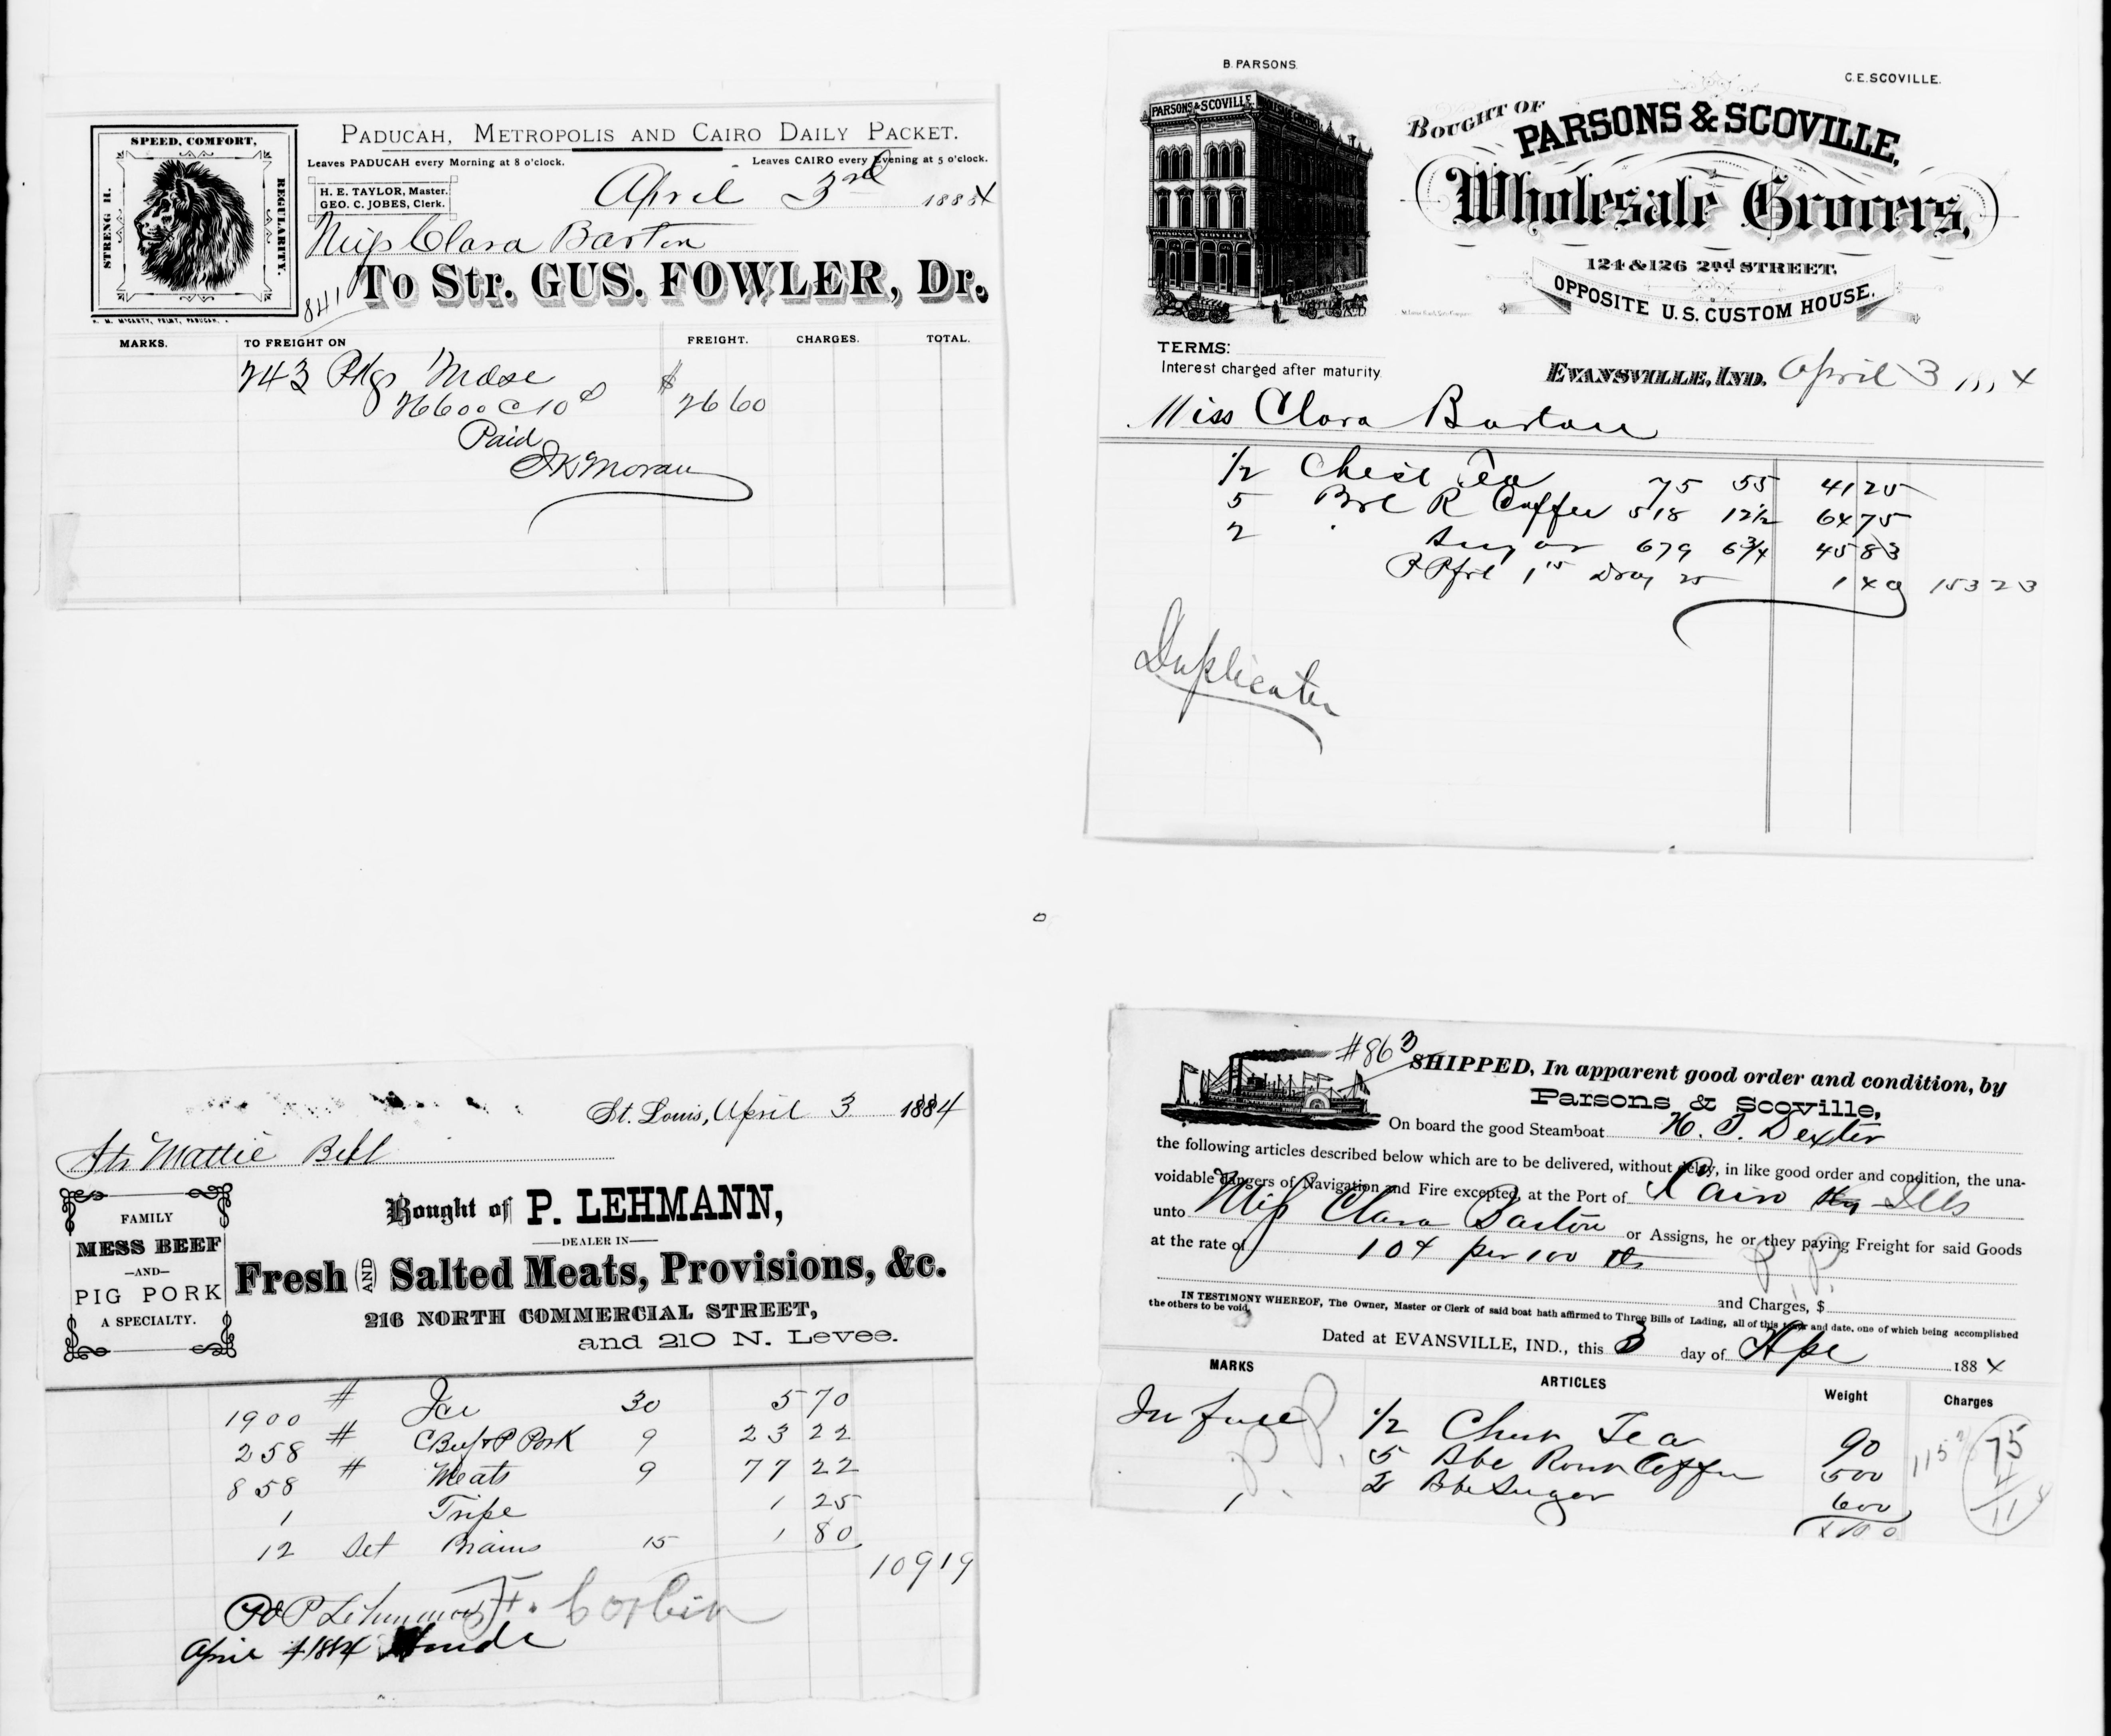 PADUCAH, METROPOLIS AND CAIRO DAILY PACKET.
Leaves PADUCAH every Morning at 8 o'clock. Leaves CAIRO every Evening at 5 o'clock.
SPEED, COMFORT,
STRENG H.
REGULARITY.
H. E. TAYLOR, Master.
GEO. C. JOBES, Clerk.
April 3rd 1884
Miss Clara Barton
841
To Str. GUS. FOWLER, Dr.
MARKS. TO FREIGHT ON FREIGHT. CHARGES. TOTAL.
243 Pkgs Mdse
26600 @ 10¢ $ 26 60
Paid
B. PARSONS. C. E. SCOVILLE.
PARSONS & SCOVILLE
BOUGHT OF
PARSONS & SCOVILLE,
Wholesale Grocers,
124 & 126 2nd STREET,
OPPOSITE U.S. CUSTOM HOUSE.
TERMS:
Interest charged after maturity
EVANSVILLE, IND. April 3 1884
Miss Clara Barton
1/2 Chest Tea 75 55 41 25
5 Brl R Coffee 518 12 1/2 64 75
2 " Sugar 679 6 3/4 45 83
Dray 25 1 40 153 23
Duplicate
St. Louis, April 3 1884
Str Mattie Bell
FAMILY
MESS BEEF
—AND—
PIG PORK
A SPECIALTY.
Bought of P. LEHMANN,
DEALER IN
Fresh AND Salted Meats, Provisions, &c.
216 NORTH COMMERCIAL STREET,
and 210 N. Levee.
1900 # Ice 30 5 70
258 # C Beef & P Pork 9 23 22
858 # Meats 9 77 22
1 Tripe 1 25
12 Set Brains 15 1 80
109 19
P Lehmann
April 4 1884
#863
SHIPPED, In apparent good order and condition, by
Parsons & Scoville,
On board the good Steamboat H. T. Dexter
the following articles described below which are to be delivered, without delay, in like good order and condition, the una-
voidable dangers of Navigation and Fire excepted, at the Port of Cairo Ills
unto Miss Clara Barton or Assigns, he or they paying Freight for said Goods
at the rate of 10¢ per 100 lbs P.P.
and Charges, $
IN TESTIMONY WHEREOF, The Owner, Master or Clerk of said boat hath affirmed to Three Bills of Lading, all of this tenor and date, one of which being accomplished
the others to be void.
Dated at EVANSVILLE, IND., this 3 day of Apl 1884
MARKS ARTICLES Weight Charges
1/2 Chest Tea 90
5 Bbl Coffee 500
2 Bbl Sugar 600
75